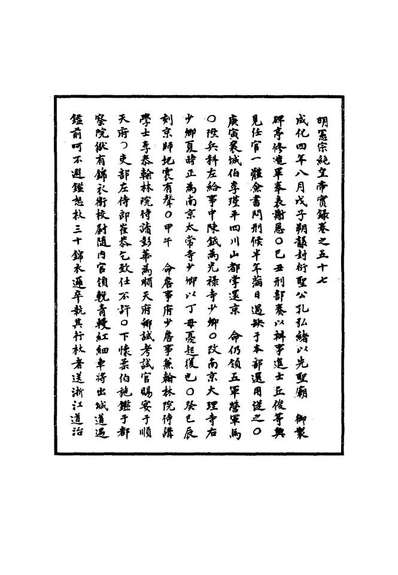 明憲宗純皇帝實錄卷之五十七
成化四年八月戊子朔襲封衍聖公孔弘緒以先聖廟 御製
碑亭修造畢奉表謝恩○己丑刑部奏以辦事進士丘俊等與
見任官一體僉書問刑候半年滿日遇缺于本部選用從之○
庚寅襄城伯李瑾平四川山都掌還京 命仍領五軍營軍馬
○陞兵科左給事中陳鉞為光祿寺少卿○改南京大理寺右
少卿夏時正為南京太常寺少卿以丁母憂起復也○癸巳辰
刻京師地震有聲○甲午 命詹事府少詹事兼翰林院侍講
學士李泰翰林院侍讀彭華為順天府鄉試考試官賜宴于順
天府○吏部左侍郎崔恭乞致仕不許○下懷柔伯施鑑于都
察院獄有錦衣衛校尉隨內官領靘青段紅紐車將出城道遇
鑑前呵不避鑑怒杖三十錦衣邏卒執其行杖者送浙江道治